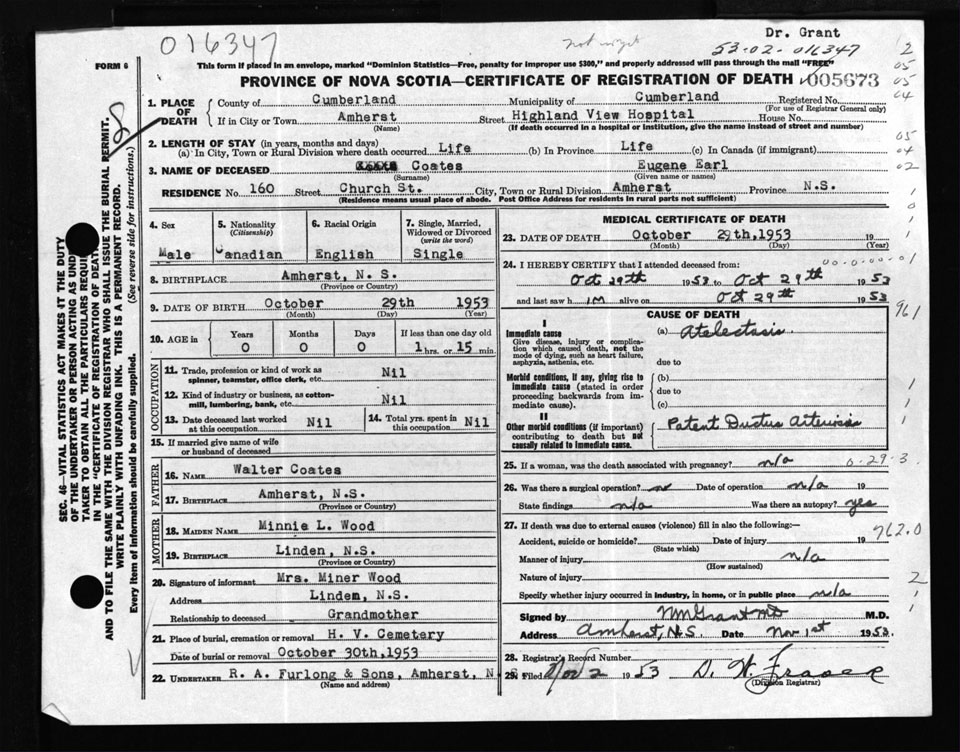 016347
Dr. Grant
53-02-016347
FORM 6
This form if placed in an envelope, marked "Dominion Statistics—Free, penalty for improper use $300," and properly addressed will pass through the mail "FREE"
PROVINCE OF NOVA SCOTIA—CERTIFICATE OF REGISTRATION OF DEATH 005673
1. PLACE OF DEATH
County of Cumberland Municipality of Cumberland Registered No.
(For use of Registrar General only)
If in City or Town Amherst Street Highland View Hospital House No.
(Name) (If death occurred in a hospital or institution, give the name instead of street and number)
2. LENGTH OF STAY (in years, months and days)
(a) In City, Town or Rural Division where death occurred Life (b) In Province Life (c) In Canada (if immigrant)
3. NAME OF DECEASED Coates Eugene Earl
(Surname) (Given name or names)
RESIDENCE No. 160 Street Church St. City, Town or Rural Division Amherst Province N.S.
(Residence means usual place of abode. Post Office Address for residents in rural parts not sufficient)
4. Sex
Male
5. Nationality
(Citizenship)
Canadian
6. Racial Origin
English
7. Single, Married, Widowed or Divorced
(write the word)
Single
8. BIRTHPLACE Amherst, N. S.
(Province or Country)
9. DATE OF BIRTH October 29th 1953
(Month) (Day) (Year)
10. AGE in
Years Months Days If less than one day old
0 0 0 1 hrs. or 15 min.
OCCUPATION
11. Trade, profession or kind of work as spinner, teamster, office clerk, etc. Nil
12. Kind of industry or business, as cotton-mill, lumbering, bank, etc. Nil
13. Date deceased last worked at this occupation Nil
14. Total yrs. spent in this occupation Nil
15. If married give name of wife or husband of deceased
FATHER
16. NAME Walter Coates
17. BIRTHPLACE Amherst, N.S.
(Province or Country)
MOTHER
18. MAIDEN NAME Minnie L. Wood
19. BIRTHPLACE Linden, N.S.
(Province or Country)
20. Signature of informant Mrs. Miner Wood
Address Linden, N.S.
Relationship to deceased Grandmother
21. Place of burial, cremation or removal H. V. Cemetery
Date of burial or removal October 30th, 1953
22. UNDERTAKER R. A. Furlong & Sons, Amherst, N.S.
(Name and address)
MEDICAL CERTIFICATE OF DEATH
23. DATE OF DEATH October 29th, 1953 19
(Month) (Day) (Year)
24. I HEREBY CERTIFY that I attended deceased from: 00-0-00-01
Oct 29th 1953 to Oct 29th 1953
and last saw him alive on Oct 29th 1953
CAUSE OF DEATH
I
Immediate cause (a) Atelectasis.
Give disease, injury or complication which caused death, not the mode of dying, such as heart failure, asphyxia, asthenia, etc.
due to
Morbid conditions, if any, giving rise to immediate cause (stated in order proceeding backwards from immediate cause).
(b)
due to
(c)
II
Other morbid conditions (if important) contributing to death but not causally related to immediate cause.
Patent Ductus Arteriosis
25. If a woman, was the death associated with pregnancy? n/a 0-29-3
26. Was there a surgical operation? no Date of operation n/a 19
State findings n/a Was there an autopsy? yes
27. If death was due to external causes (violence) fill in also the following:—
Accident, suicide or homicide? Date of injury 19
(State which)
Manner of injury n/a
(How sustained)
Nature of injury
Specify whether injury occurred in industry, in home, or in public place n/a
Signed by NMGrant MD M.D.
Address Amherst, N.S. Date Nov 1st 1953.
28. Registrar's Record Number
29. Filed Nov 2 1953 D. W. Fraser
(Division Registrar)
2
05
05
04
05
04
02
1
0
1
1
961
1
1
1
962.0
2
1
SEC. 46—VITAL STATISTICS ACT MAKES IT THE DUTY
OF THE UNDERTAKER OR PERSON ACTING AS UND
TAKER TO OBTAIN ALL THE PARTICULARS REQUI
IN THE "CERTIFICATE OF REGISTRATION OF DEAT
AND TO FILE THE SAME WITH THE DIVISION REGISTRAR WHO SHALL ISSUE THE BURIAL PERMIT.
WRITE PLAINLY WITH UNFADING INK. THIS IS A PERMANENT RECORD.
Every item of information should be carefully supplied. (See reverse side for instructions.)
8